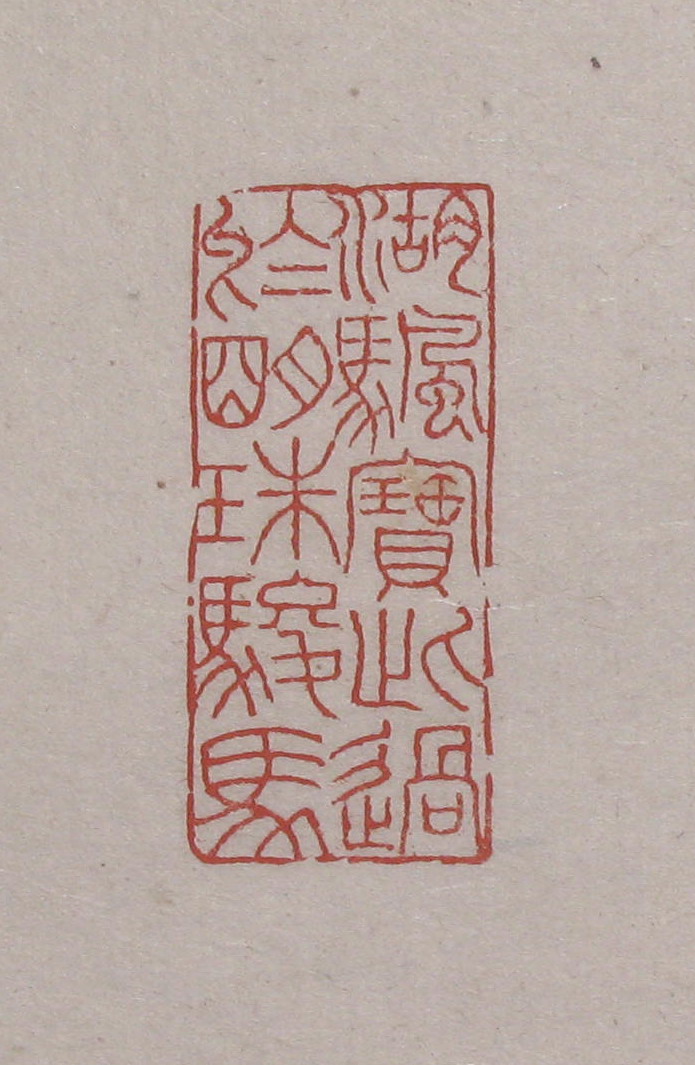 湖颿寶此過
於明珠駿馬